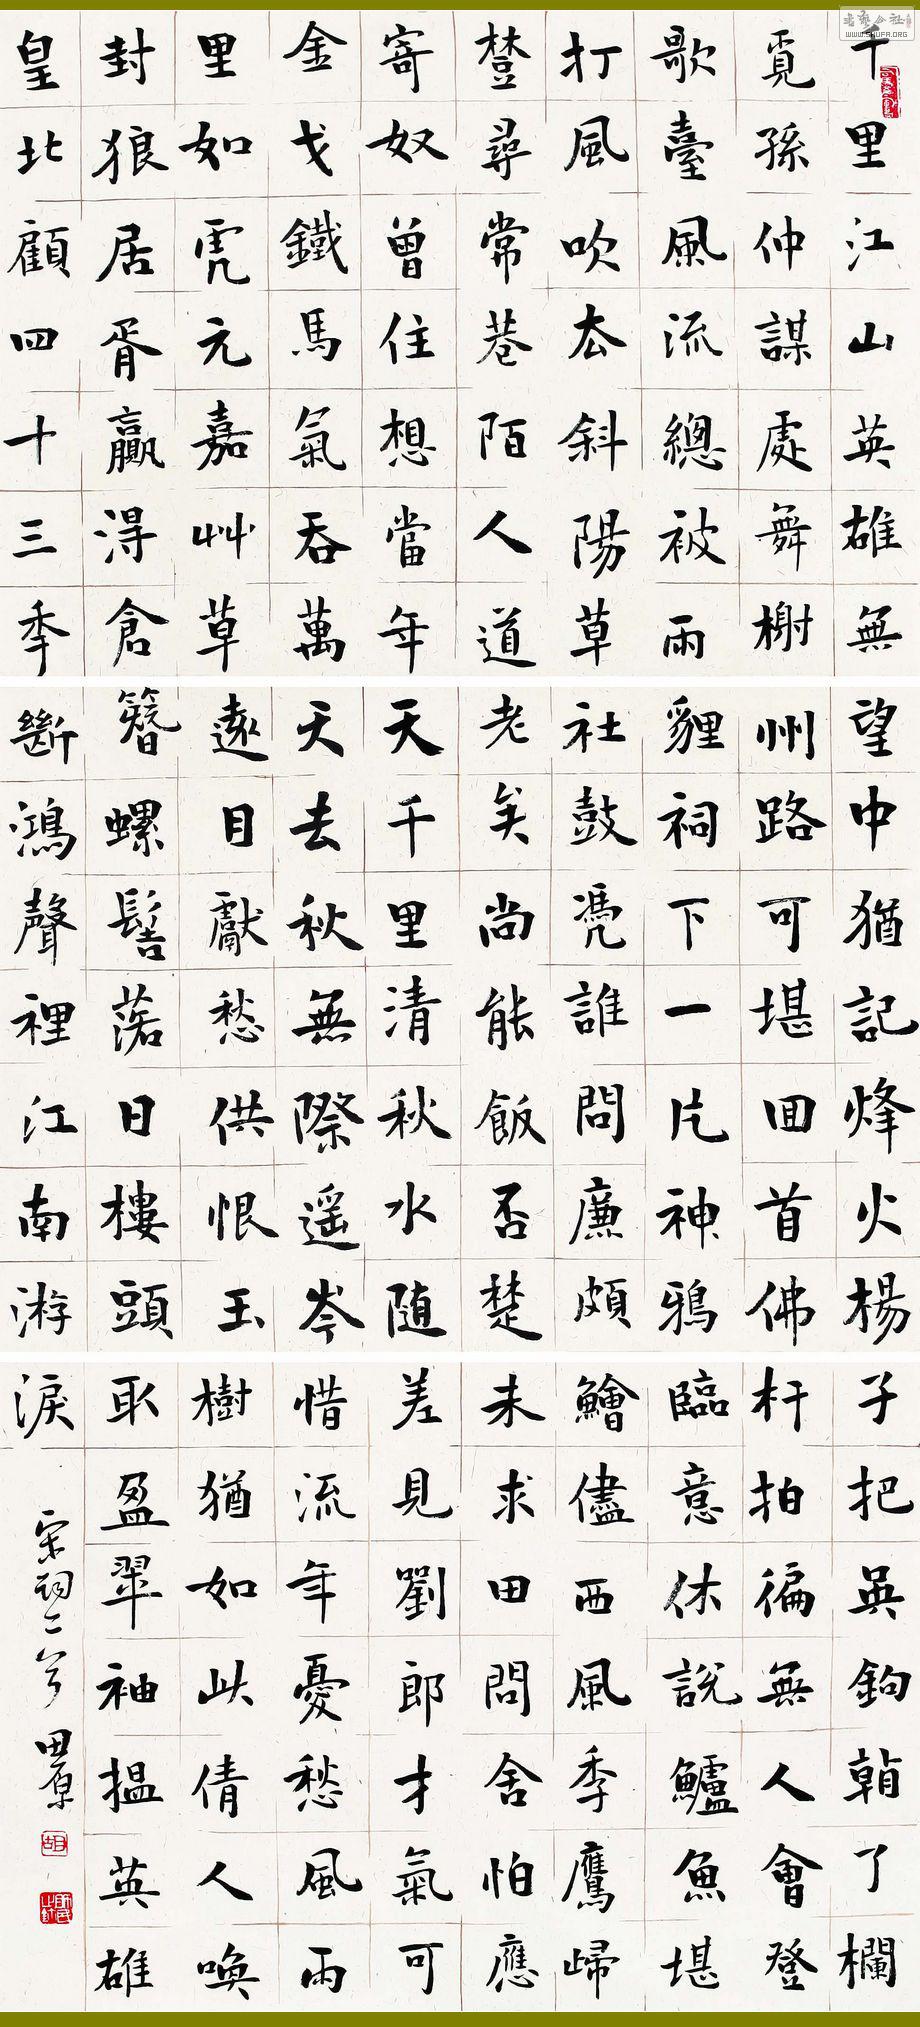 千里江山英雄無
覓孫仲謀處舞榭
歌臺風流總被雨
打風吹去斜陽草
樹尋常巷陌人道
寄奴曾住想當年
金戈鐵馬氣吞萬
里如虎元嘉艸草
封狼居胥贏得倉
皇北顧四十三年
望中猶記烽火楊
州路可堪回首佛
貍祠下一片神鴉
社鼓憑誰問廉頗
老矣尚能飯否楚
天千里清秋水随
天去秋無際遥岑
遠目獻愁供恨玉
簪螺髻落日樓頭
斷鴻聲裡江南游
子把吳鉤看了欄
杆拍徧無人會登
臨意休說鱸魚堪
鱠儘西風季鷹歸
未求田問舍怕應
羞見劉郎才氣可
惜流年憂愁風雨
樹猶如此倩人喚
取盈翠袖揾英雄
淚
宋詞二首 田原
书艺公社
WWW.SHUFA.ORG